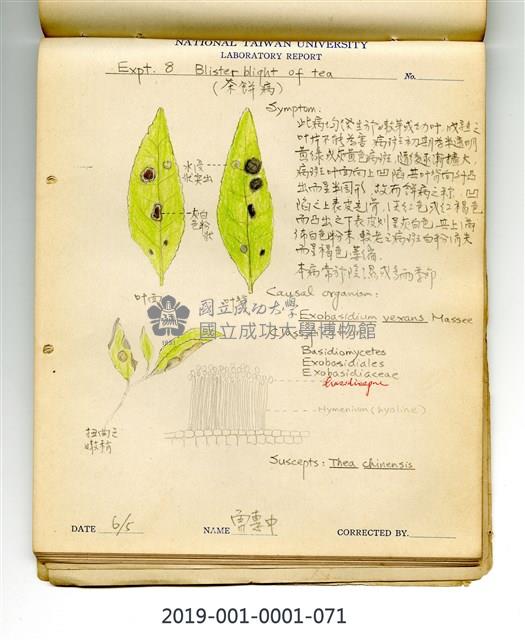 NATIONAL TAIWAN UNIVERSITY
LABORATORY REPORT
Expt. 8 Blister blight of tea No.
(茶餅病)
Symptom:
此病均發生於嫩芽或幼葉, 成熟之
葉片不能為害 病斑初期為半透明
黃綠或灰黃色病斑, 隨後逐漸擴大,
病斑葉面向上凹陷其葉背向外凸
出而呈半圓形 故有餅病之稱, 凹
陷之上表皮
而凸出之下表皮則呈灰白色, 其上
有白色粉末 較老之病斑白粉消失
而呈褐色
本病常於陰濕或多雨季節
水浸
狀突出
灰白
色粉
狀
葉面
Causal organism:
Exobasidium vexans Massee
國立成功大學
國立成功大學博物館
1931
Basidiomycetes
Exobasidiales
Exobasidiaceae
Basidiospore
Hymenium (hyaline)
扭曲之
嫩梢
Suscepts: Thea chinensis
DATE 6/5 NAME CORRECTED BY
2019-001-0001-071